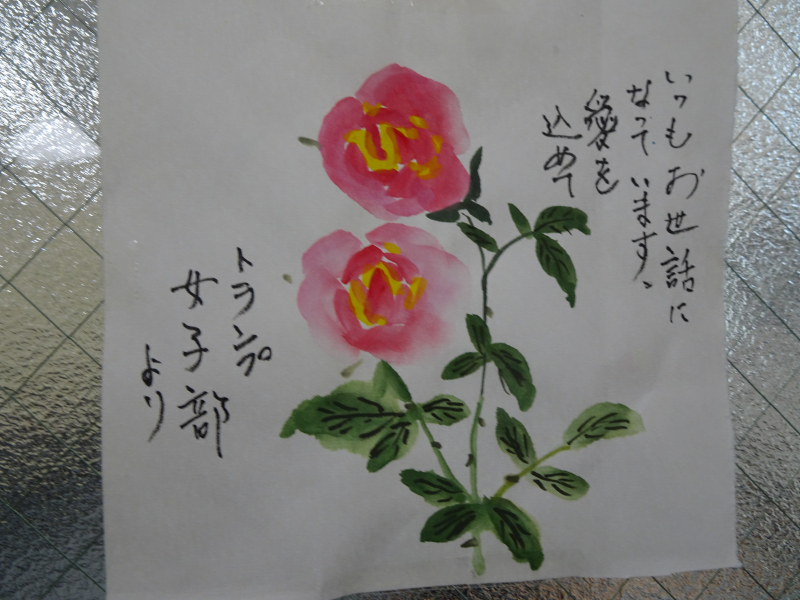 いつもお世話に
なっています、
愛を
込めて
トランプ
女子部
より